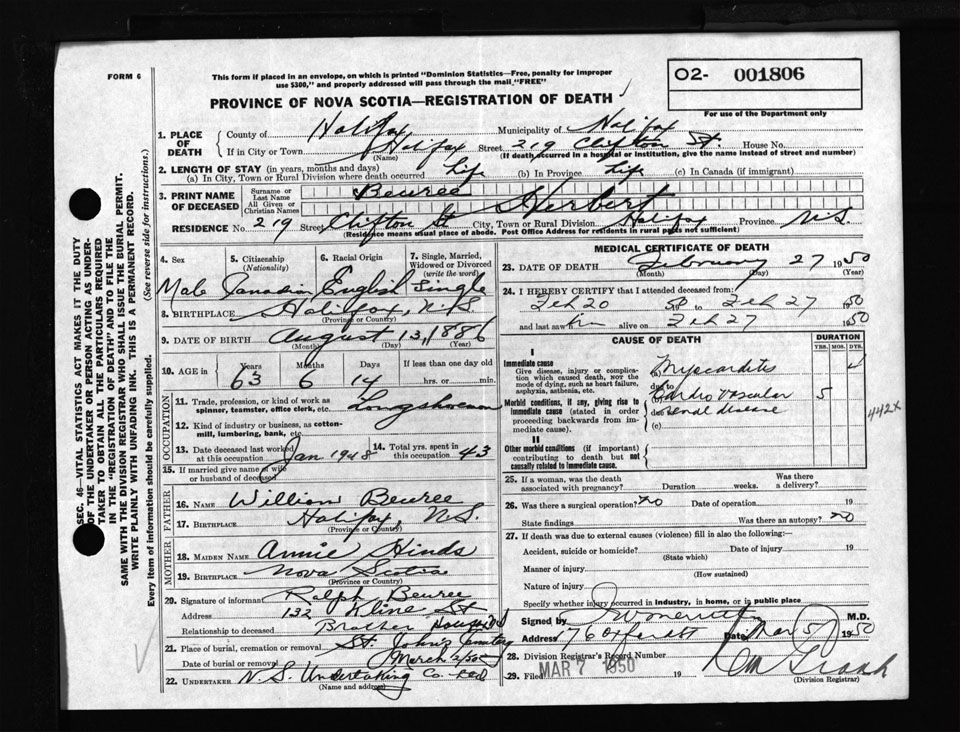 FORM 6
This form if placed in an envelope, on which is printed "Dominion Statistics—Free, penalty for improper
use $300," and properly addressed will pass through the mail "FREE"
PROVINCE OF NOVA SCOTIA—REGISTRATION OF DEATH
O2- 001806
For use of the Department only
1. PLACE OF DEATH
County of Halifax Municipality of Halifax
If in City or Town Halifax Street 219 Clifton St. House No.
(Name) (If death occurred in a hospital or institution, give the name instead of street and number)
2. LENGTH OF STAY (in years, months and days)
(a) In City, Town or Rural Division where death occurred Life (b) In Province Life (c) In Canada (if immigrant)
3. PRINT NAME OF DECEASED
Surname or Last Name Beuree
All Given or Christian Names Herbert
RESIDENCE No. 219 Street Clifton St City, Town or Rural Division Halifax Province N.S
(Residence means usual place of abode. Post Office Address for residents in rural parts not sufficient)
4. Sex
Male
5. Citizenship (Nationality)
Canadian
6. Racial Origin
English
7. Single, Married, Widowed or Divorced (write the word)
Single
8. BIRTHPLACE Halifax, N.S.
(Province or Country)
9. DATE OF BIRTH August 13, 1886
(Month) (Day) (Year)
10. AGE in Years Months Days If less than one day old
63 6 14 hrs. or min.
OCCUPATION
11. Trade, profession, or kind of work as
spinner, teamster, office clerk, etc. Longshoreman
12. Kind of industry or business, as cotton-
mill, lumbering, bank, etc.
13. Date deceased last worked at this occupation Jan 1948
14. Total yrs. spent in this occupation 43
15. If married give name of wife
or husband of deceased
FATHER
16. Name William Beuree
17. Birthplace Halifax, N.S.
(Province or Country)
MOTHER
18. MAIDEN NAME Annie Hinds
19. BIRTHPLACE Nova Scotia
(Province or Country)
20. Signature of informant Ralph Beuree
Address 132 Kline St
Relationship to deceased Brother
21. Place of burial, cremation or removal St. John's Cemetery
Date of burial or removal March 2/50
22. UNDERTAKER N.S. Undertaking Co. Ltd
(Name and address)
MEDICAL CERTIFICATE OF DEATH
23. DATE OF DEATH February 27 1950
(Month) (Day) (Year)
24. I HEREBY CERTIFY that I attended deceased from:
Feb 20 50 to Feb 27 1950
and last saw him alive on Feb 27 1950
CAUSE OF DEATH
DURATION
YRS. MOS. DYS.
I
Immediate cause
Give disease, injury or complica-
tion which caused death, not the
mode of dying, such as heart failure,
asphyxia, asthenia, etc.
(a) Myocarditis
due to
Morbid conditions, if any, giving rise to
immediate cause (stated in order
proceeding backwards from im-
mediate cause).
(b) Cardio vascular 5
due to renal disease
(c)
442X
II
Other morbid conditions (if important)
contributing to death but not
causally related to immediate cause.
25. If a woman, was the death
associated with pregnancy? Duration weeks. Was there a delivery?
26. Was there a surgical operation? no Date of operation 19
State findings Was there an autopsy? no
27. If death was due to external causes (violence) fill in also the following:—
Accident, suicide or homicide? Date of injury 19
(State which)
Manner of injury
(How sustained)
Nature of injury
Specify whether injury occurred in industry, in home, or in public place
Signed by M.D.
Address 176 Oxford St Date Mar 5 1950
28. Division Registrar's Record Number
29. Filed MAR 7 1950 19
(Division Registrar)
SEC. 46—VITAL STATISTICS ACT MAKES IT THE DUTY
OF THE UNDERTAKER OR PERSON ACTING AS UNDER-
TAKER TO OBTAIN ALL THE PARTICULARS REQUIRED
IN THE "REGISTRATION OF DEATH" AND TO FILE THE
SAME WITH THE DIVISION REGISTRAR WHO SHALL ISSUE THE BURIAL PERMIT.
WRITE PLAINLY WITH UNFADING INK. THIS IS A PERMANENT RECORD.
Every item of information should be carefully supplied. (See reverse side for instructions.)